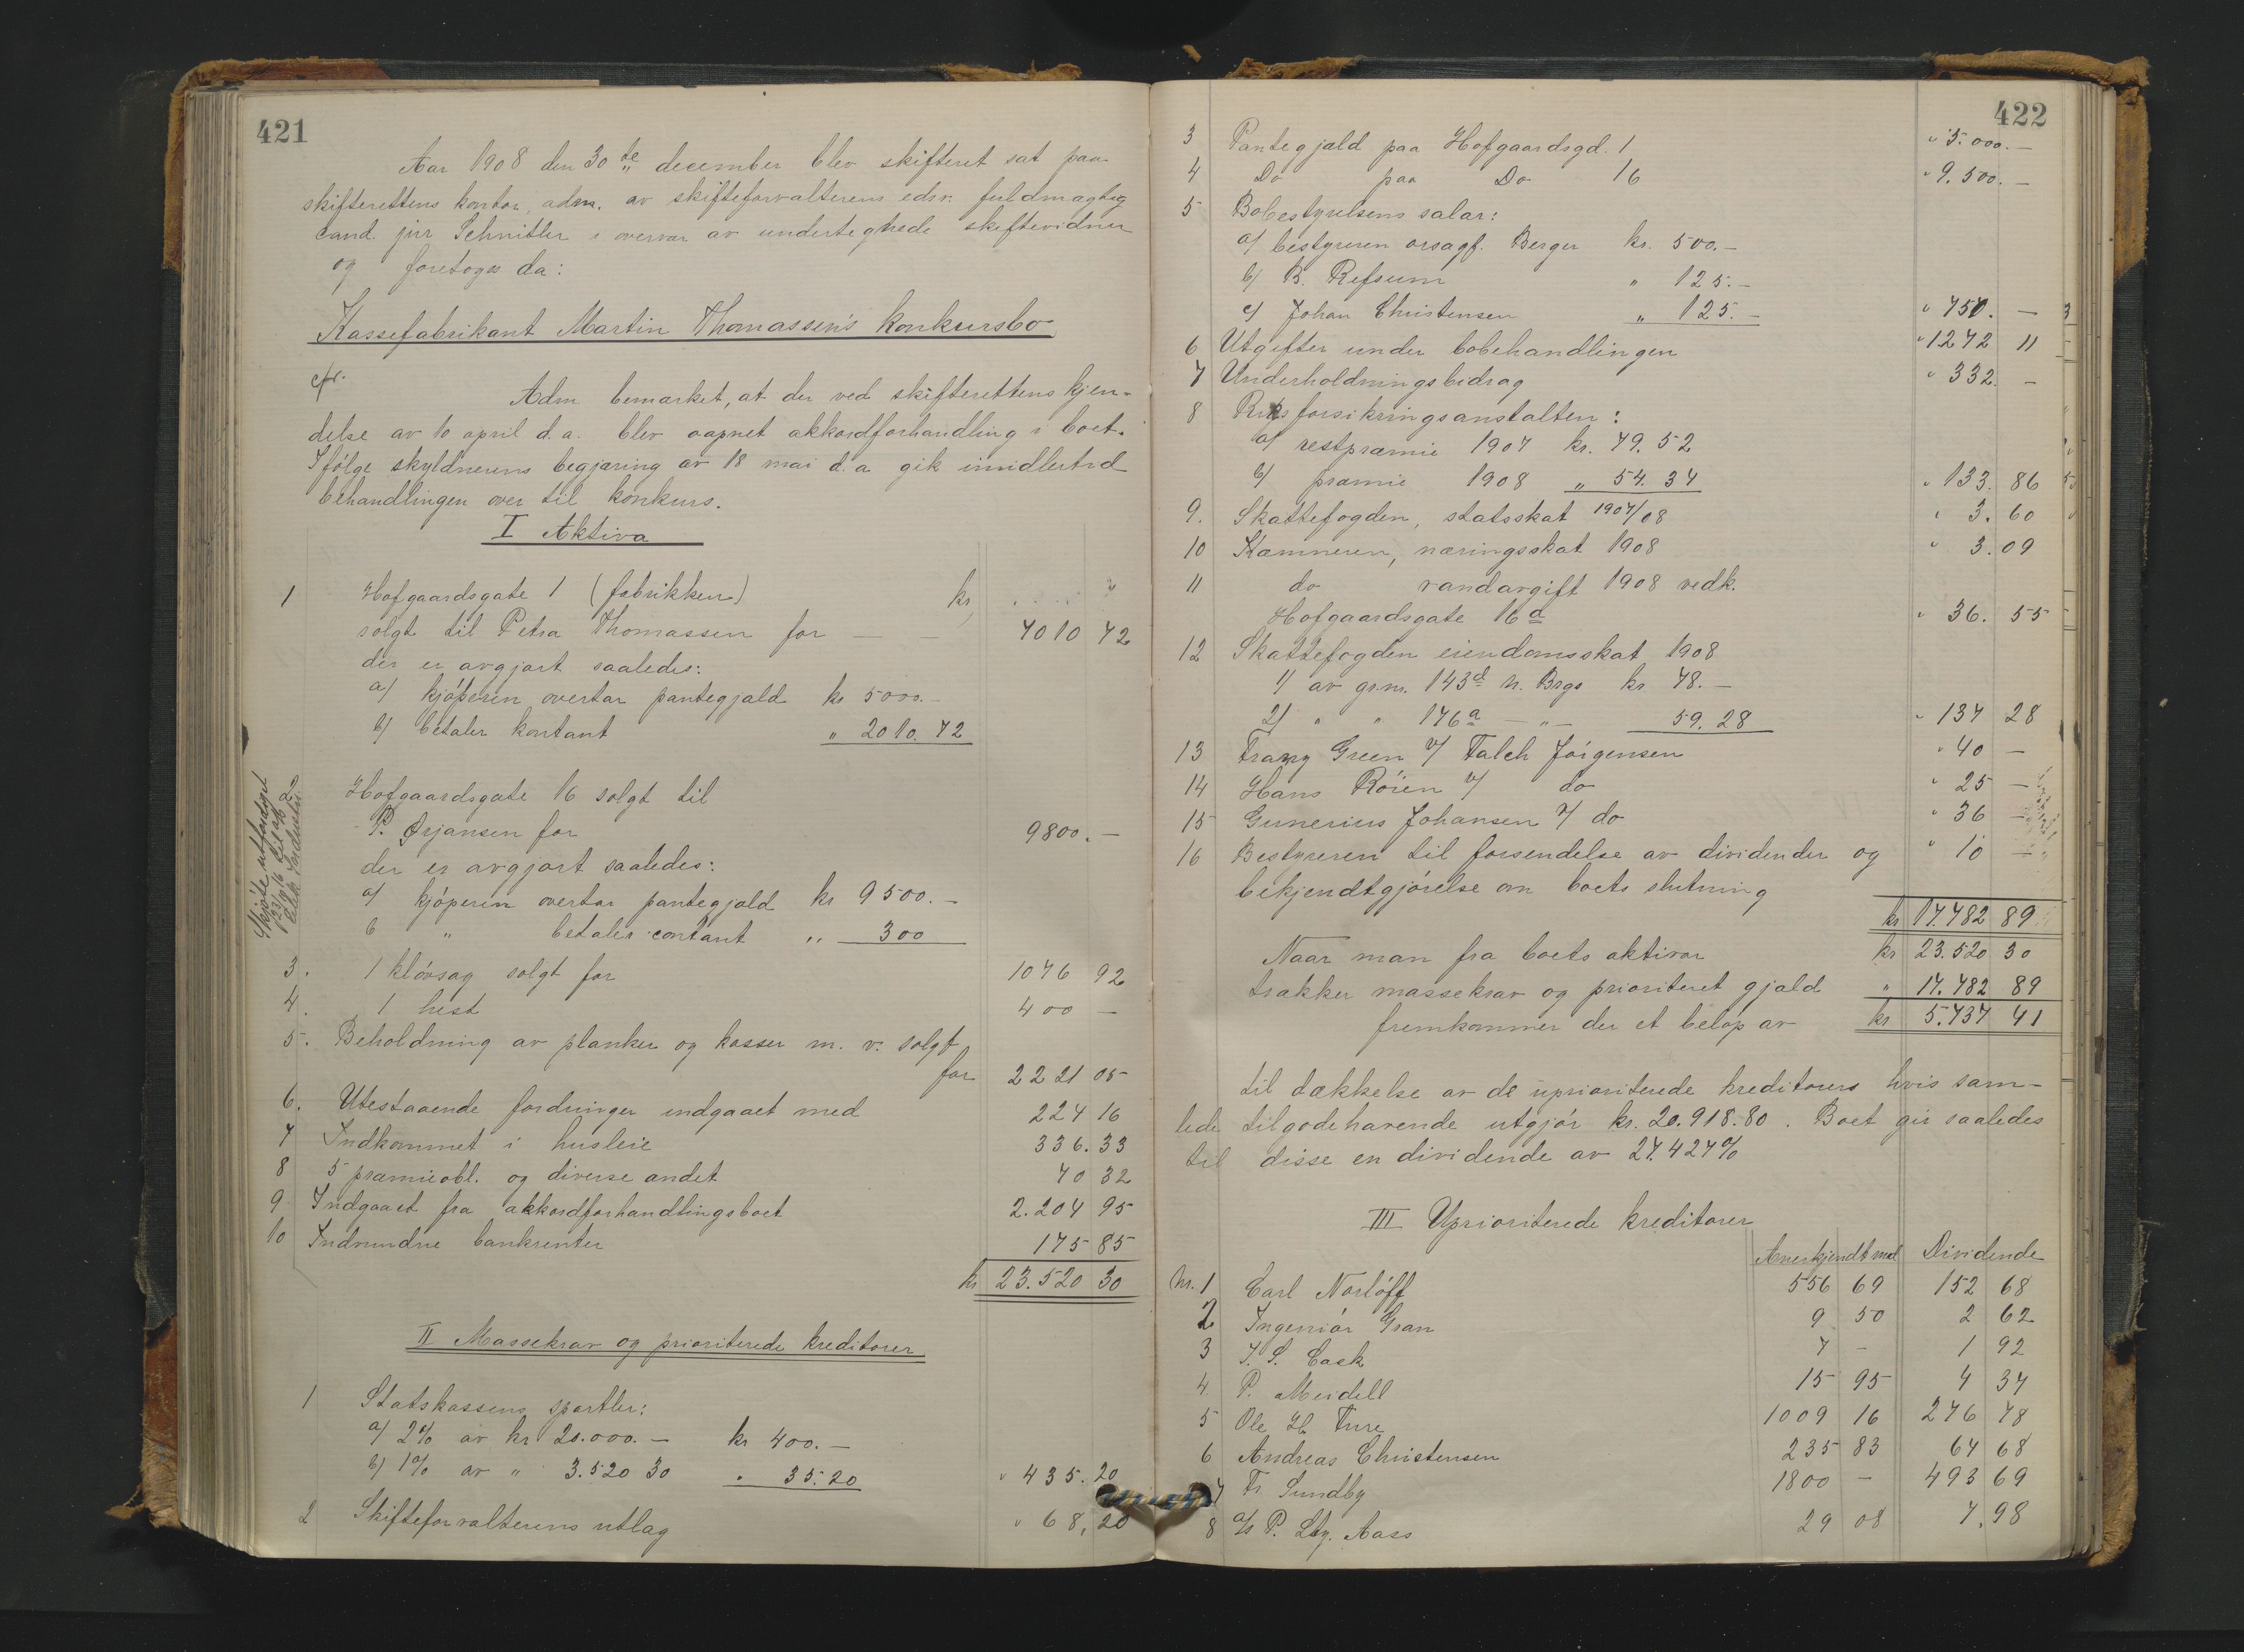 421
Aar 1908 den 30de december blev skifteret sat paa
skifterettens kontor, adm. av skifteforvalterens edsv. fuldmægtig
cand. jur Schnitler i overvær av undertegnede skiftevidner
og foretoges da:
Kassefabrikant Martin Thomassen's konkursbo
cfr.
Adm bemærket, at der ved skifterettens kjen-
delse av 10 april d.a. blev aapnet akkordforhandling i boet.
Ifølge skyldnerens begjæring av 18 mai d.a gik imidlertid
behandlingen over til konkurs.
I Aktiva
1 Hofgaardsgate 1 (fabrikken) kr
solgt til Petra Thomassen for — — 7010 72
der er avgjort saaledes:
a/ kjøperen overtar pantegjæld kr 5000.-
b/ betaler kontant " 2010.72
Skjøte utfærdiget
23/9 16 til a/s
Elek. Industri.
2
Hofgaardsgate 16 solgt til
P. Ørjansen for 9800.-
der er avgjort saaledes:
a/ kjøperen overtar pantegjæld kr 9500.-
b " betaler contant " 300
3. 1 kløvsag solgt for 1076 92
4. 1 hest 400 -
5. Beholdning av planker og kasser m. v. solgt
for 2221 05
6. Utestaaende fordringer indgaaet med 224 16
7 Indkommet i husleie 336.33
8 5 præmieobl. og diverse andet 70 32
9 Indgaaet fra akkordforhandlingsboet 2.204 95
10 Indvundne bankrenter 175 85
kr 23.520 30
II Massekrav og prioriterede kreditorer
1 Statskassens sportler:
a/ 2% av kr 20.000.- kr 400.-
b/ 1% av " 3.520 30 " 35.20 " 435.20
2 Skifteforvalterens utlæg " 68,20
422
3 Pantegjæld paa Hofgaardsgd. 1 " 5.000.-
4 Do paa Do 16 " 9.500.-
5 Bobestyrelsens salær:
a/ bestyreren orsagf. Berger kr. 500.-
b/ B. Refsum " 125.-
c/ Johan Christensen " 125.- " 750.-
6 Utgifter under bobehandlingen " 1272 11
7 Underholdningsbidrag " 332.-
8 Riksforsikringsanstalten:
a/ restpræmie 1907 kr. 79.52
b/ præmie 1908 " 54.34 " 133.86
9. Skattefogden, statsskat 1907/08 " 3.60
10 Kæmneren, næringsskat 1908 " 3.09
11 do vandavgift 1908 vedk.
Hofgaardsgate 16a " 36.55
12 Skattefogden eiendomsskat 1908
1/ av gr.nr. 143d n. Brgs kr. 78.-
2/ " " 176a - " - 59.28 " 137 28
13 Franz Green v/ Falch Jørgensen " 40 -
14 Hans Røren v/ do " 25 -
15 Gunerius Johansen v/ do " 36 -
16 Bestyreren til forsendelse av dividender og " 10 -
bekjendtgjørelse om boets slutning
kr 17.782 89
Naar man fra boets aktiva kr 23.520 30
trækker massekrav og prioriteret gjæld " 17.782 89
fremkommer der et beløp av kr 5.737 41
til dækkelse av de uprioriterede kreditorers hvis sam-
lede tilgodehavende utgjør kr. 20.918.80. Boet gir saaledes
til disse en dividende av 27.427%
III Uprioriterede kreditorer
Anerkjendt med Dividende
Nr. 1 Carl Norløff 556 69 152 68
2 Ingeniør Gran 9 50 2 62
3 J. S. Cock 7 - 1 92
4. P. Meidell 15 95 4 37
5 Ole H. Ture 1009 16 276 78
6 Andreas Christensen 235 83 64 68
7 Fr. Sundby 1800 - 493 69
8 a/s P. Ltz. Aass 29 08 7.98